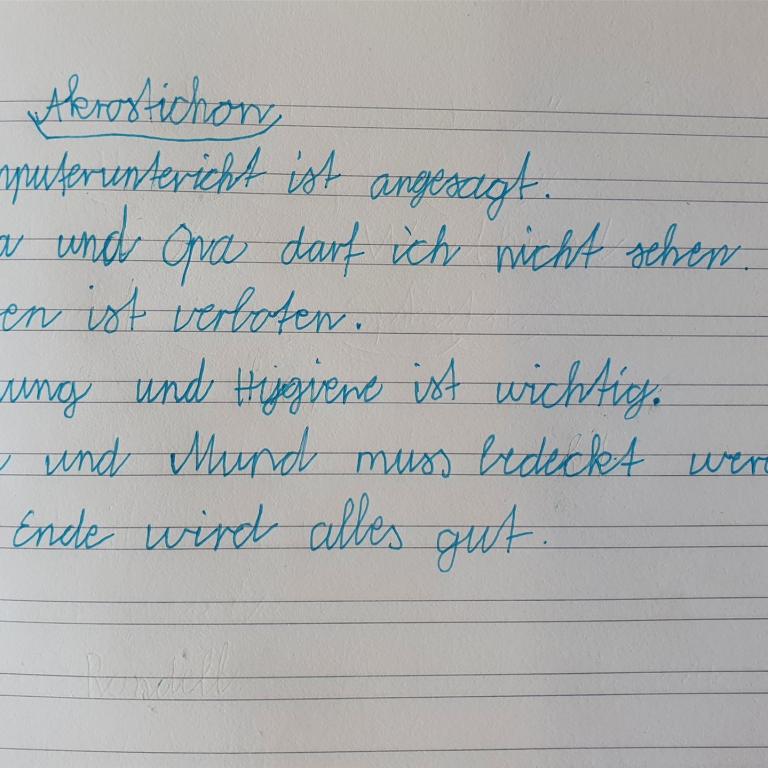 Akrostichon
mputerunterricht ist angesagt.
a und Opa darf ich nicht sehen.
en ist verboten.
ung und Hygiene ist wichtig.
und Mund muss bedeckt wer
Ende wird alles gut.